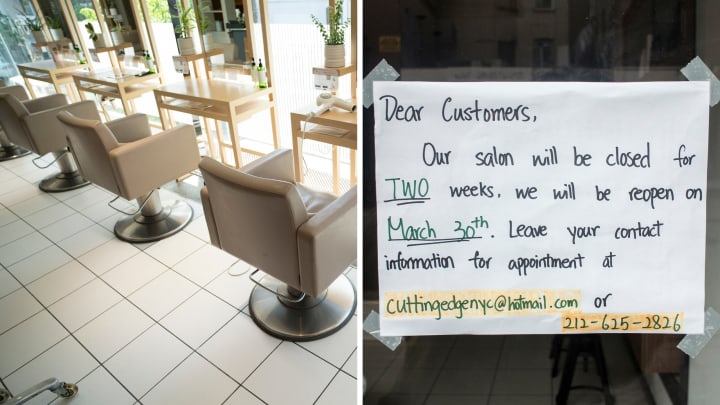 Dear Customers,
Our salon will be closed for
TWO weeks. we will be reopen on
March 30th. Leave your contact
information for appointment at
cuttingedgenyc@hotmail.com or
212-625-2826